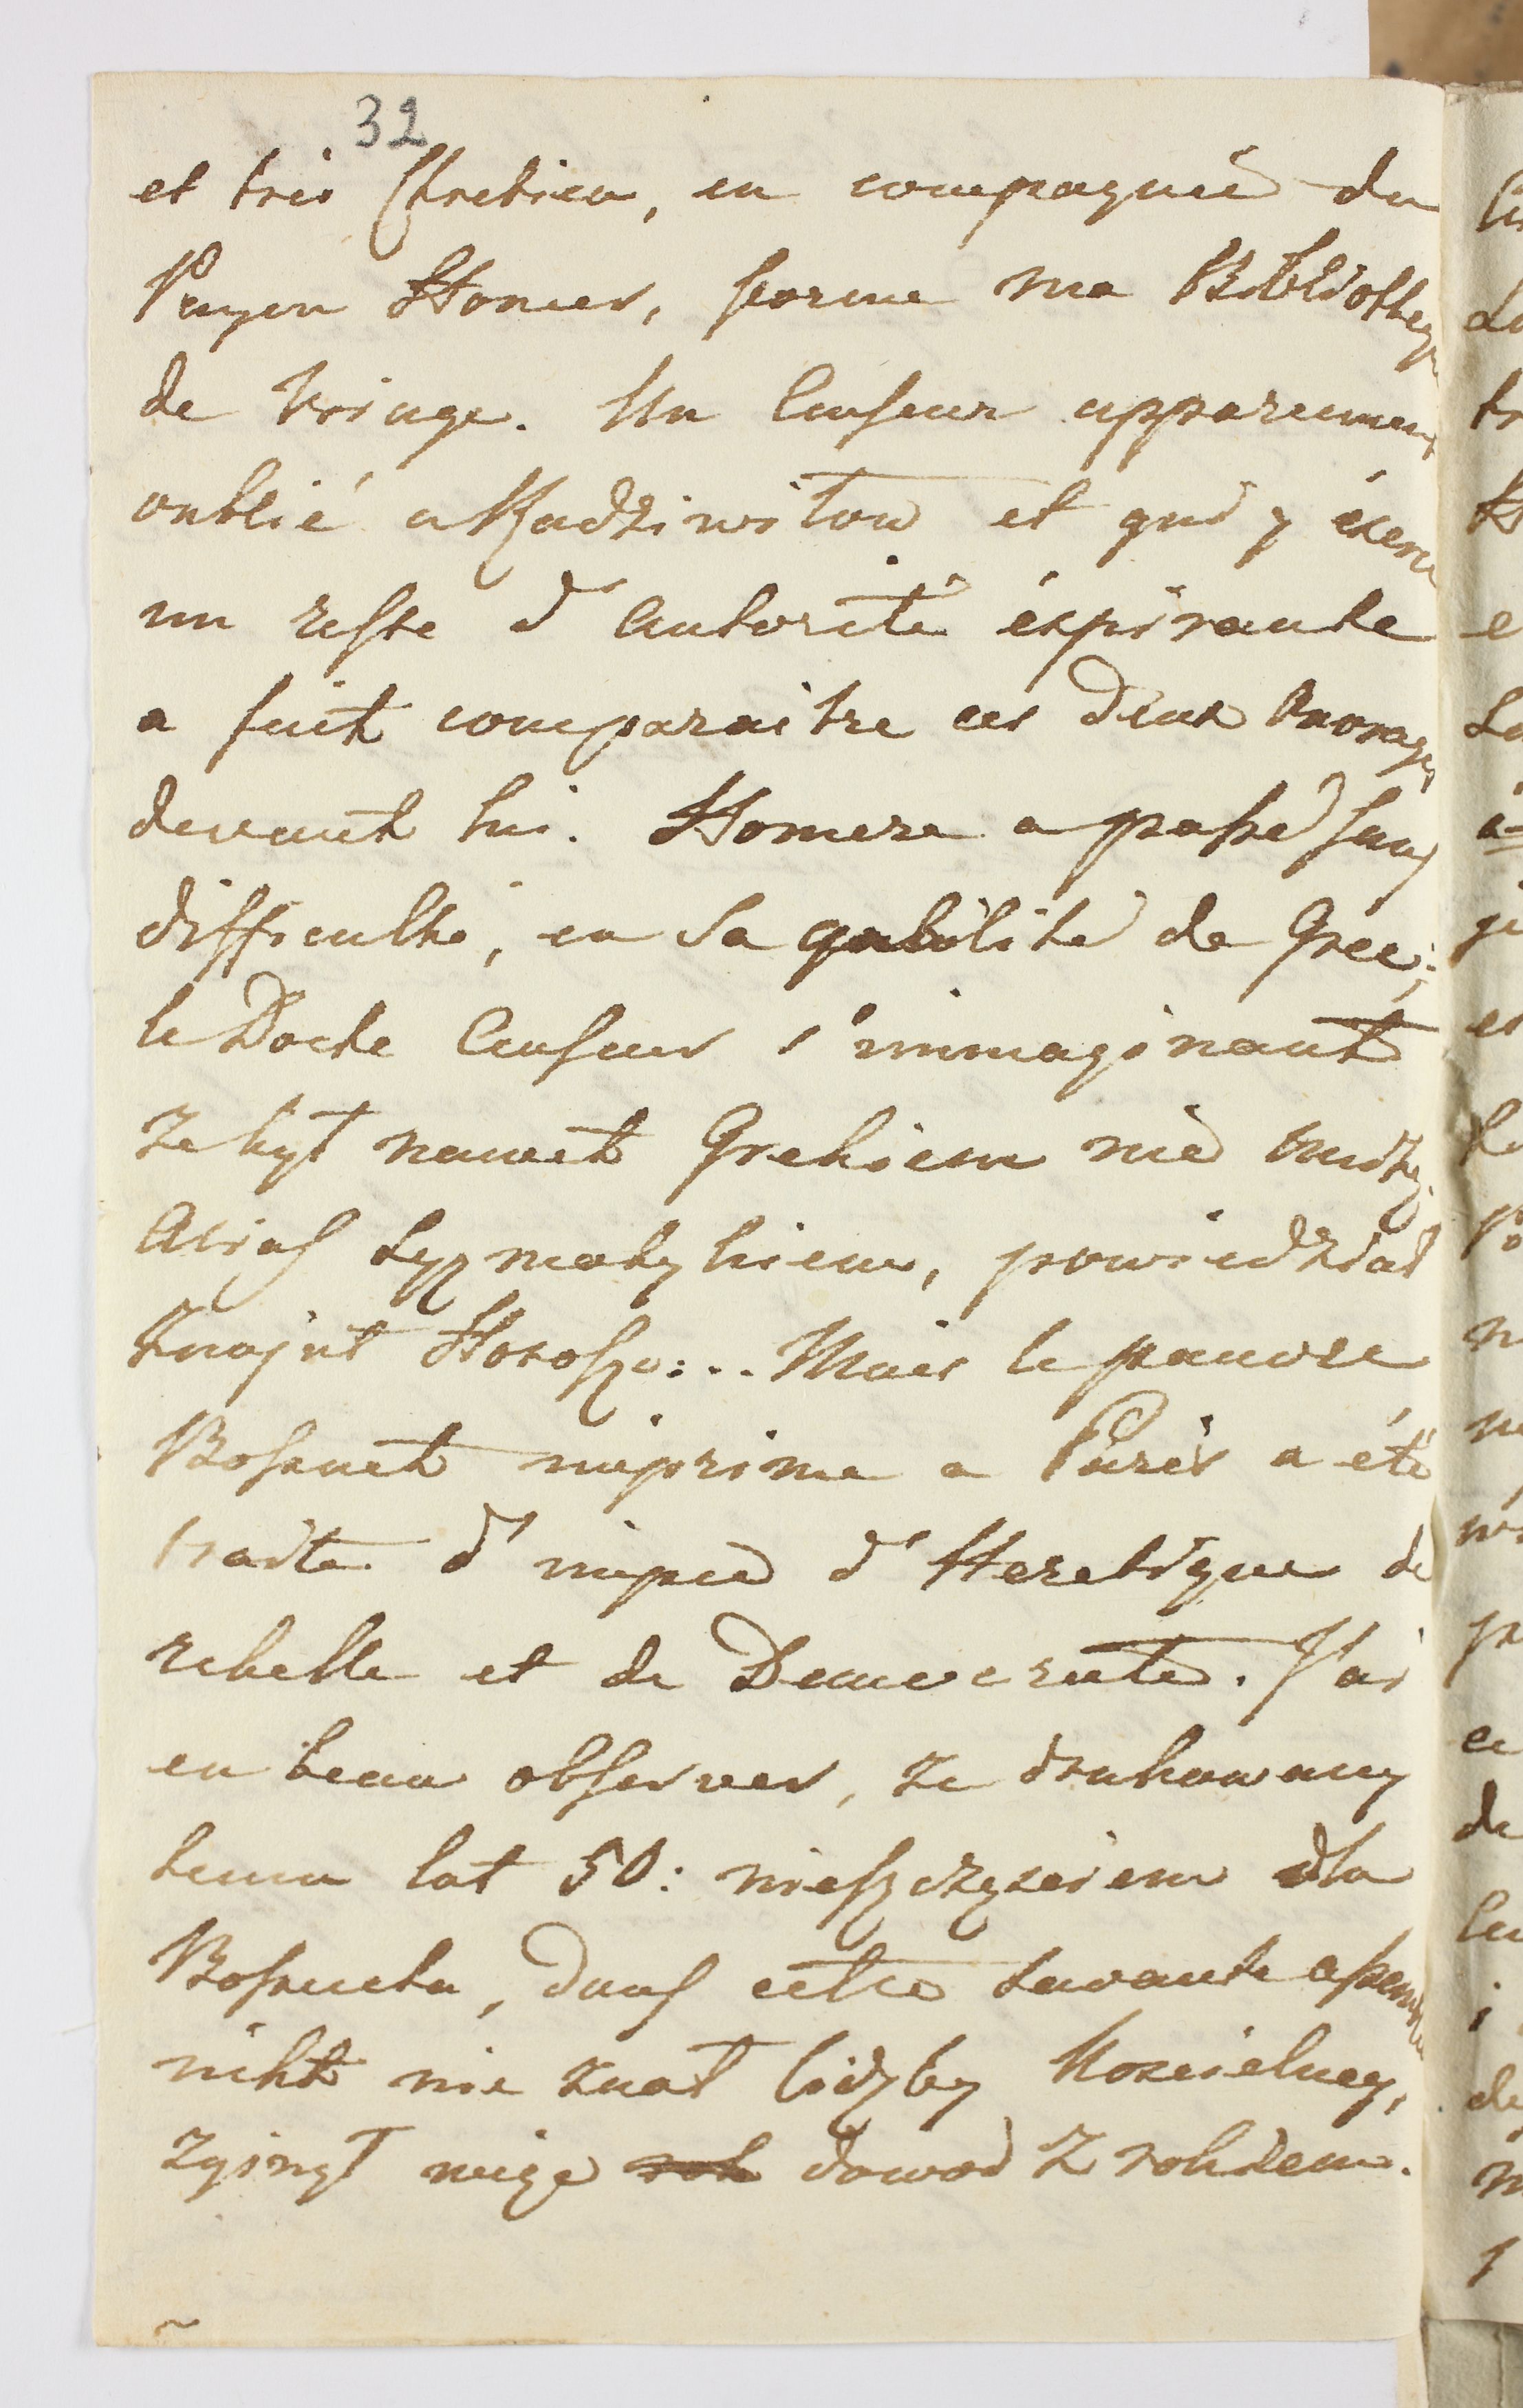 32
et trés Chretien, en compagnié du
Payen Homer, forme ma Bibliotheq
de Voiage. Un Censeur apparemen
oublié a Radziwiłow et qui y éxerce
un reste d'Autorité éxpirante
a fait comparaitre ces deux Ouvrages
devant lui. Homere a passé sans
difficulté, en sa qualité de Grec;
le Docte Censeur s'immaginant
ze był nawet Grekiem nie Unitą
Alias Syzmatykiem, powiedział
Znajut Horoszo:.. Mais le pauvre
Bossuet imprime a Paris a été
traite d'impie d'Heretique de
rebelle et de Democrate. J'ai
eu beau observer, ze drukowany
temu lat 50: nieszczęsciem dla
Bossueta, dans cette savante assemblée
nikt nie znał liczby Koscielney,
Zginął więc dowod z rokiem.